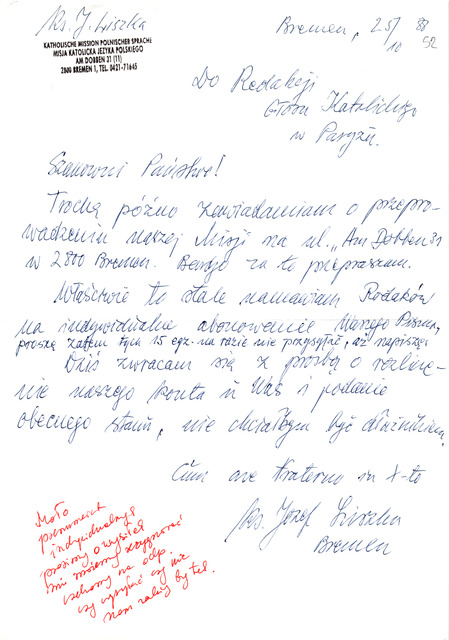 Ks. J. Liszka
KATHOLISCHE MISSION POLNISCHER SPRACHE
MISJA KATOLICKA JEZYKA POLSKIEGO
AM DOBBEN 31 (11)
2800 BREMEN 1, TEL. 0421-71645
Bremen, 25/10 88
52
Do Redakcji
Głosu Katolickiego
w Paryżu.
Szanowni Państwo!
Trochę późno zawiadamiam o przepro-
wadzeniu naszej Misji na ul. „Am Dobben 31
w 2800 Bremen. Bardzo za to przepraszam.
Właściwie to stale namawiam Rodaków
na indywidualne abonowanie Waszego Pisma,
proszę zatem tych 15 egz. na razie nie przysyłać, aż napiszę.
Dziś zwracam się z prośbą o rozlicze-
nie naszego konta u Was i podanie
obecnego stanu, nie chciałbym być dłużnikiem.
Cum ave fraterno in X-to
Ks. Józef Liszka
Bremen
Mało
prenumerat
indywidualnych
prosimy o wysiłek
nie możemy
czekamy na odp.
czy wysyłać czy nie